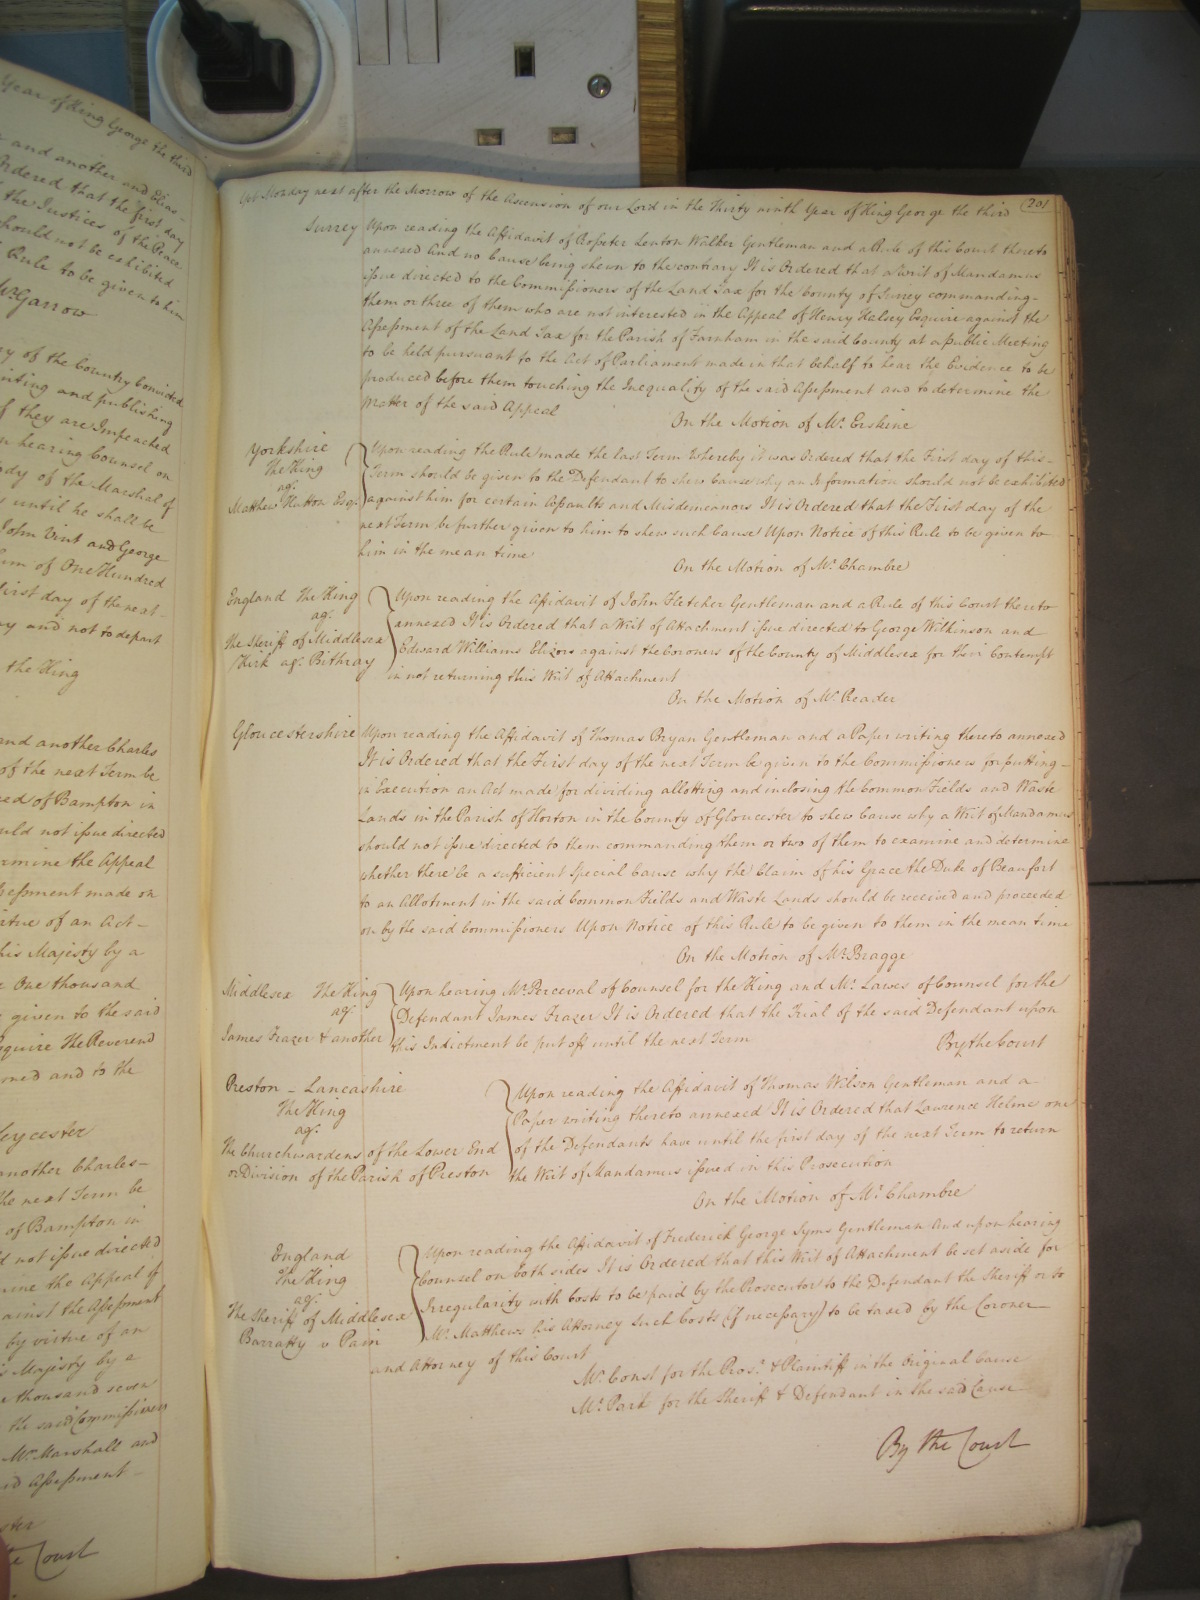 Year of King George the third
and another and Elias
Ordered that the first day
the Justices of the Peace
should not be exhibited
Rule to be given to him
Mr. Garrow
of the Country Convicted
printing and publishing
if they are Impeached
hearing Counsel on
Body of the Marshal of
until he shall be
John Vint and George
Sum of One Hundred
first day of the next
and not to depart
the King
and another Charles
of the next Term be
of Bampton in
should not issue directed
determine the Appeal
Assessment made on
virtue of an Act
his Majesty by a
One thousand
given to the said
Esquire The Reverend
and to the
Leycester
another Charles
the next Term be
of Bampton in
not issue directed
the Appeal of
against the Assessment
by virtue of an
Majesty by a
thousand seven
the said Commissioners
Mr. Marshall and
said Assessment
the Court
Yet Monday next after the Morrow of the Ascension of our Lord in the Thirty ninth Year of King George the third 201
Surrey Upon reading the Affidavit of Rosseter Lenton Walker Gentleman and a Rule of this Court thereto
annexed And no Cause being shewn to the contrary It is Ordered that a Writ of Mandamus
issue directed to the Commissioners of the Land Tax for the County of Surrey commanding
them or three of them who are not interested in the Appeal of Henry Halsey Esquire against the
Assessment of the Land Tax for the Parish of Farnham in the said County at a public Meeting
to be held pursuant to the Act of Parliament made in that behalf to hear the Evidence to be
produced before them touching the Inequality of the said Assessment and to determine the
Matter of the said Appeal
On the Motion of Mr. Erskine
Yorkshire
The King
agt.
Matthew Hutton Esqr.
Upon reading the Rule made the last Term Whereby it was Ordered that the First day of this
Term should be given to the Defendant to shew Cause why an Information should not be exhibited
against him for certain Assaults and Misdemeanors It is Ordered that the First day of the
next Term be further given to him to shew such Cause Upon Notice of this Rule to be given to
him in the mean time
On the Motion of Mr. Chambre
England The King
agt.
The Sheriff of Middlesex
Kirk agt. Bithray
Upon reading the Affidavit of John Fletcher Gentleman and a Rule of this Court thereto
annexed It is Ordered that a Writ of Attachment issue directed to George Wilkinson and
Edward Williams Elizors against the Coroners of the County of Middlesex for their Contempt
in not returning this Writ of Attachment
On the Motion of Mr. Reader
Gloucestershire Upon reading the Affidavit of Thomas Bryan Gentleman and a Paper writing thereto annexed
It is Ordered that the First day of the next Term be given to the Commissioners for putting
in Execution an Act made for dividing allotting and inclosing the Common Fields and Waste
Lands in the Parish of Horton in the County of Gloucester to shew Cause why a Writ of Mandamus
should not issue directed to them commanding them or two of them to examine and determine
whether there be a sufficient Special Cause why the Claim of his Grace the Duke of Beaufort
to an Allotment in the said Common Fields and Waste Lands should be received and proceeded
on by the said Commissioners Upon Notice of this Rule to be given to them in the mean time
On the Motion of Mr. Bragge
Middlesex The King
agt.
James Frazer & another
Upon hearing Mr. Perceval of Counsel for the King and Mr. Lawes of Counsel for the
Defendant James Frazer It is Ordered that the Trial of the said Defendant upon
this Indictment be put off until the next Term By the Court
Preston - Lancashire
The King
agt.
The Churchwardens of the Lower End
or Division of the Parish of Preston
Upon reading the Affidavit of Thomas Wilson Gentleman and a
Paper writing thereto annexed It is Ordered that Lawrence Helme one
of the Defendants have until the first day of the next Term to return
the Writ of Mandamus issued in this Prosecution
On the Motion of Mr. Chambre
England
The King
agt.
The Sheriff of Middlesex
Barratty v Pain
Upon reading the Affidavit of Frederick George Syms Gentleman And upon hearing
Counsel on both sides It is Ordered that this Writ of Attachment be set aside for
Irregularity with Costs to be paid by the Prosecutor to the Defendant the Sheriff or to
Mr. Matthews his Attorney Such Costs (if necessary) to be taxed by the Coroner
and Attorney of this Court
Mr. Const for the Prosr. & Plaintiff in the Original Cause
Mr. Park for the Sheriff & Defendant in the said Cause
By the Court